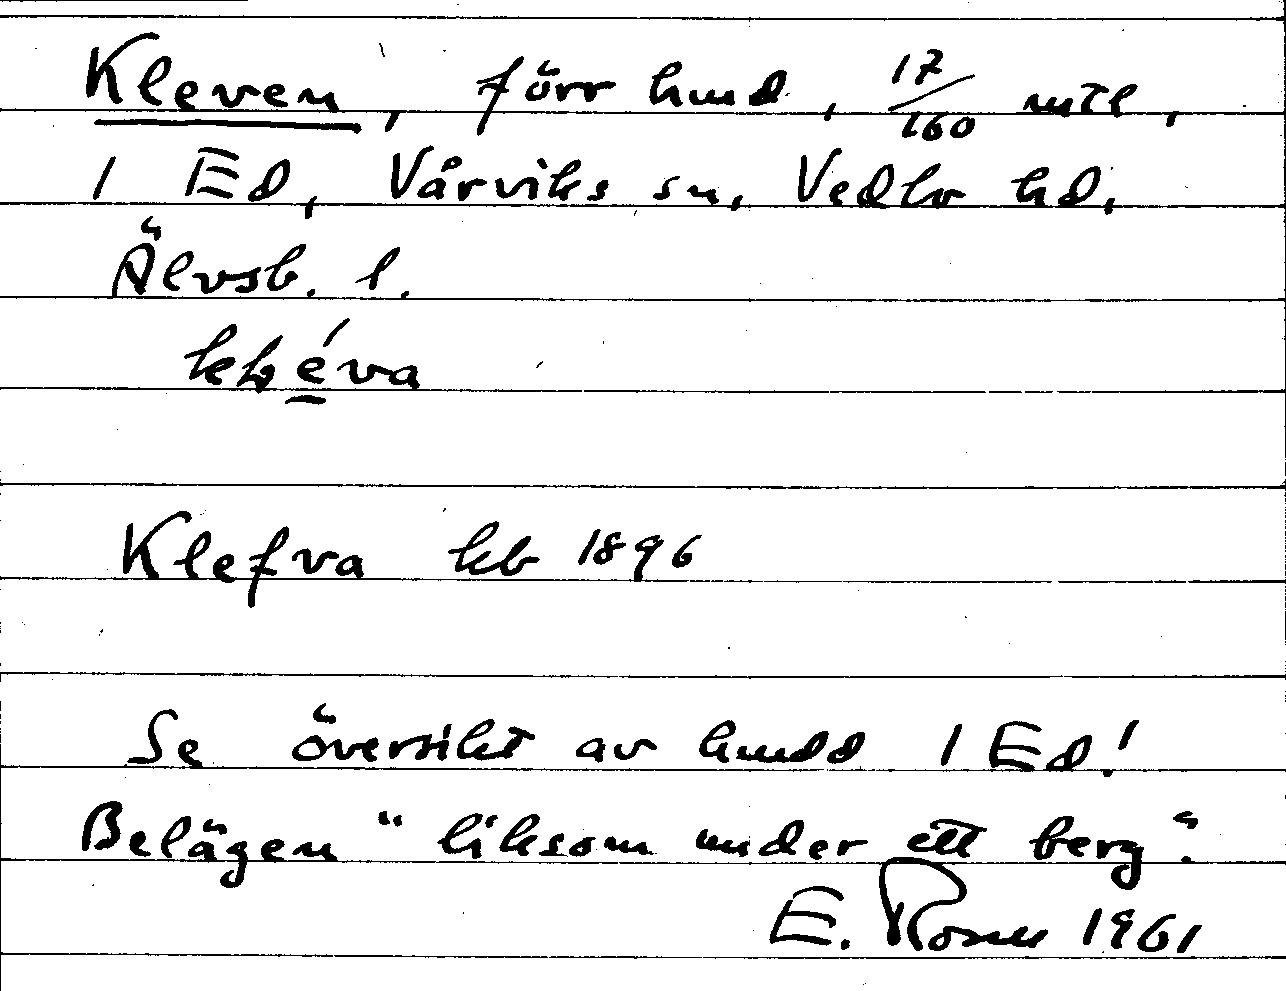 Kleven, förr hmd, 17/160 mtl,
1 Ed, Vårviks sn, Vedbo hd,
Älvsb. l.
Klefva kb 1896
Se översikt av hmdd 1 Ed!
Belägen "liksom under ett berg".
E. 1961